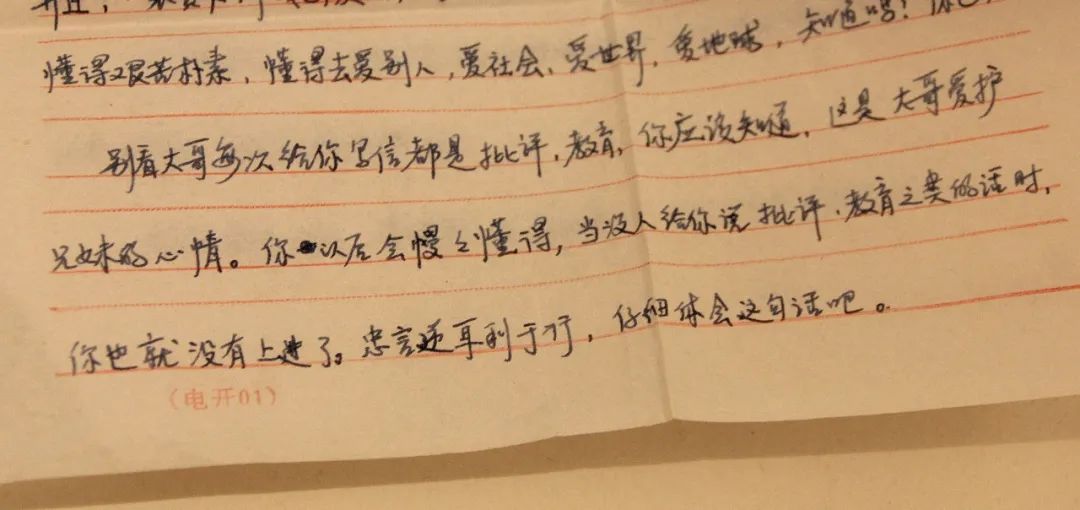 懂得艰苦朴素，懂得去爱别人，爱社会、爱世界，爱地球，知道吗？你也
别看大哥每次给你写信都是批评，教育，你应该知道，这是大哥爱护
兄妹的心情。你以后会慢々懂得，当没人给你说批评、教育之类的话时，
你也就没有上进了。忠言逆耳利于行，仔细体会这句话吧。
（电开01）